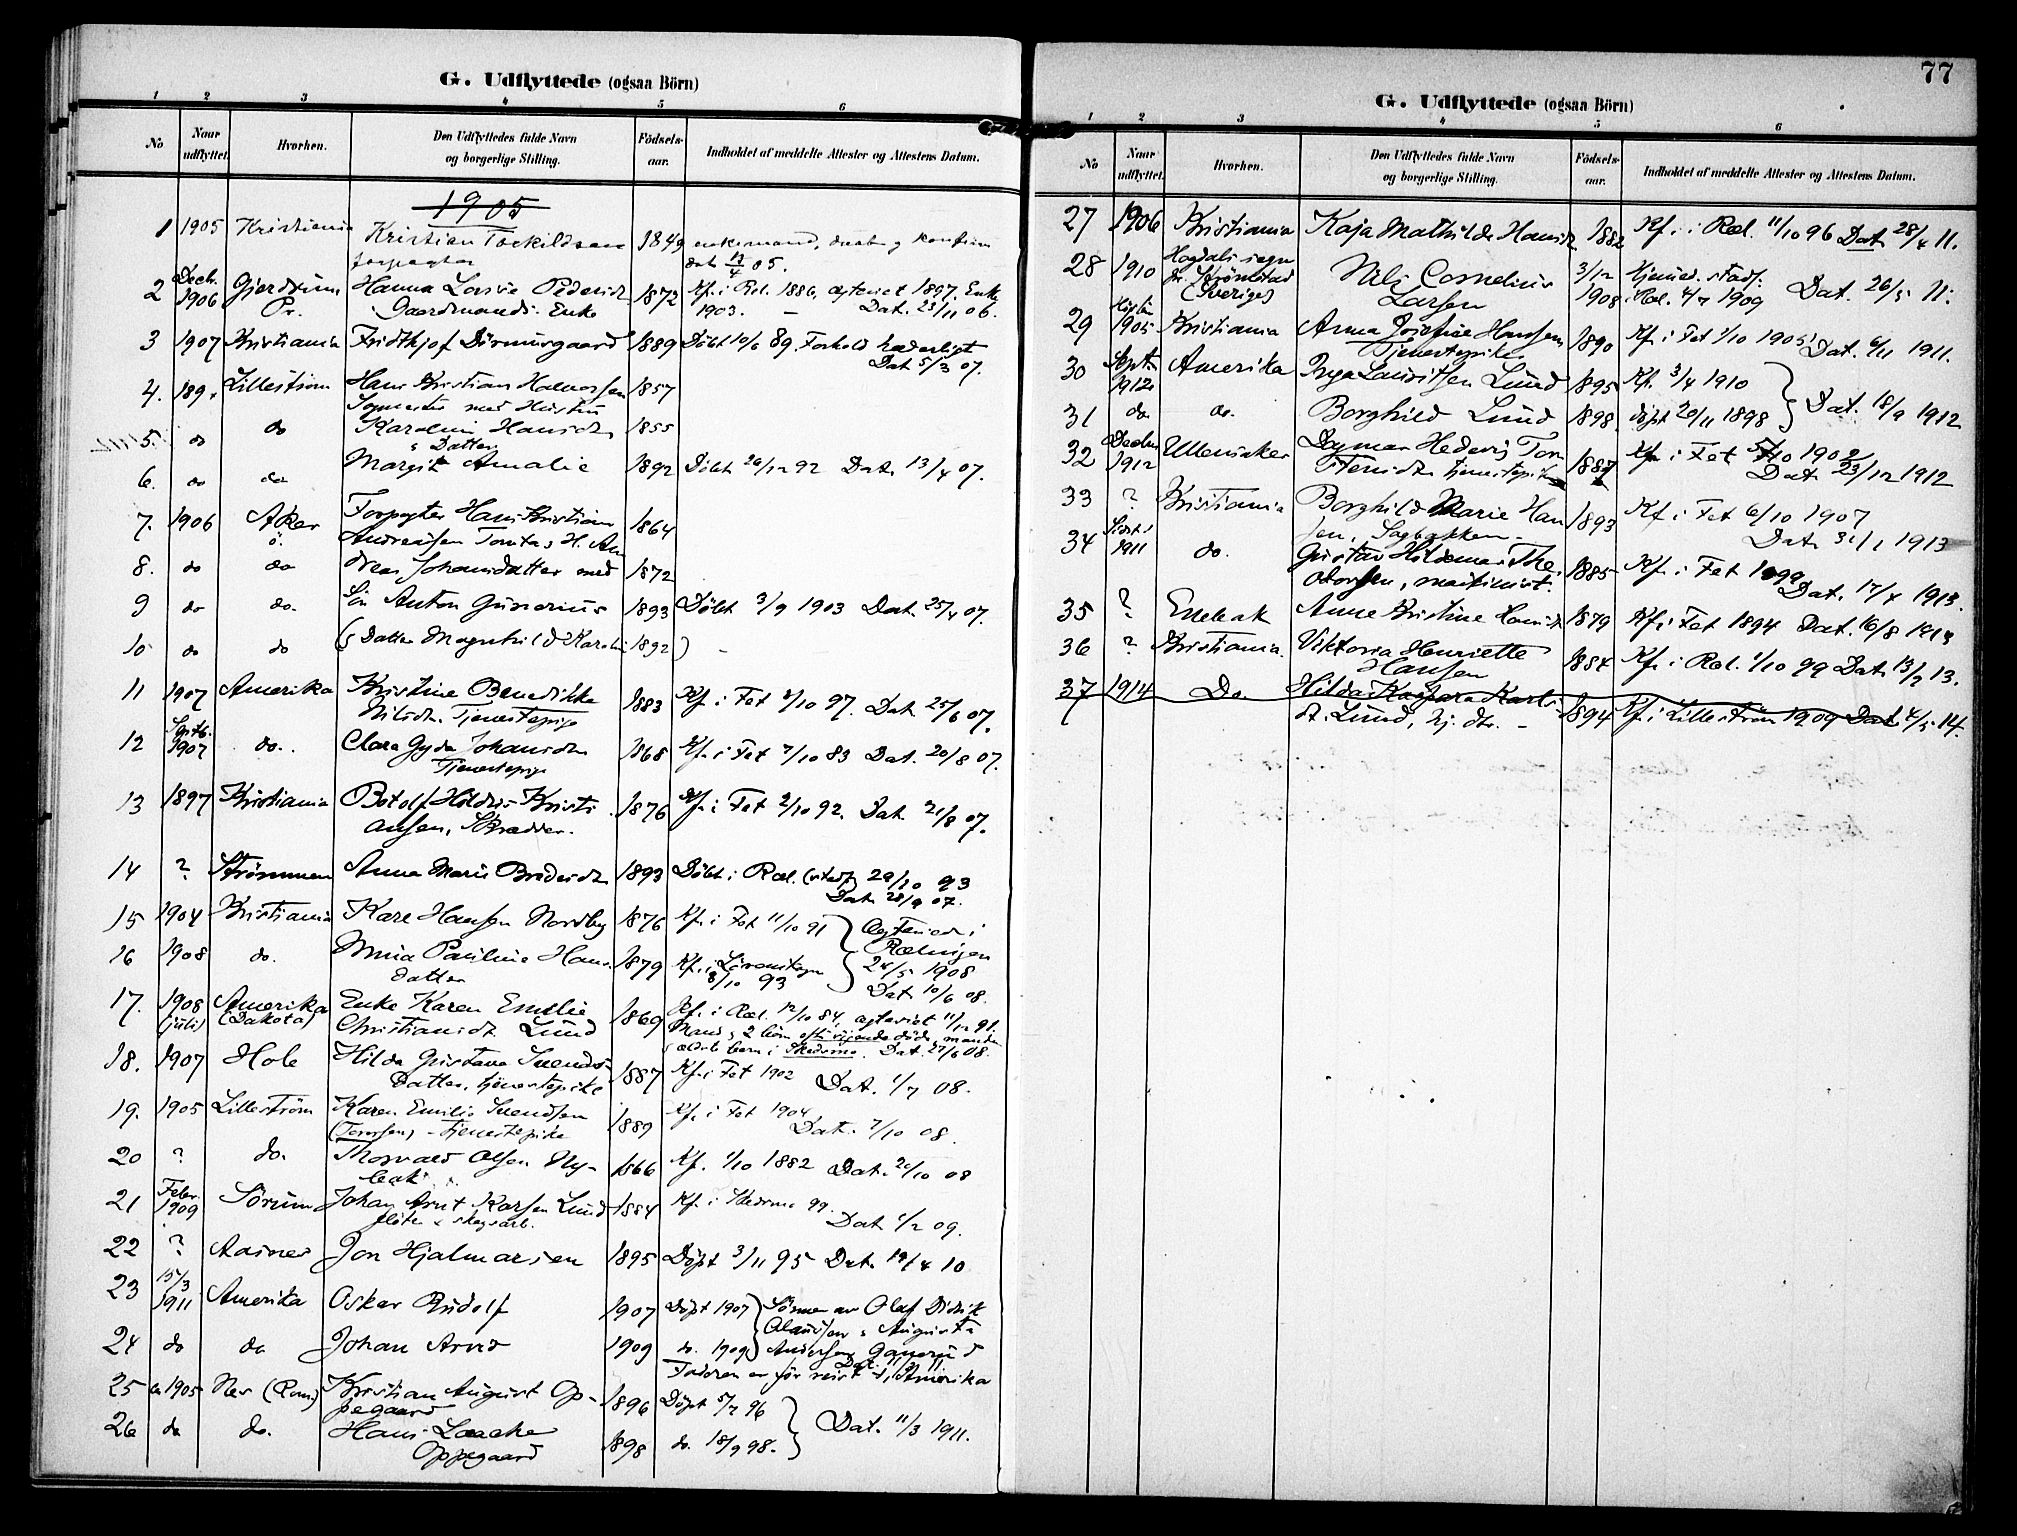 G. Udflyttede (ogsaa Börn)
1 2 3 4 5 6
No Naar udflyttet. Hvorhen. Den Udflyttedes fulde Navn og borgerlige Stilling. Födsels-aar. Indholdet af meddelte Attester og Attestens Datum.
1905
1 1905 Kristiania Kristian Torkildsen 1849 enkemand, døbt og konfirm
forpagter dat 05.
2 Decb. 1906 Gjerdrum Hanna Lovise Pedersdt. 1872 Kf. i Rel. 1886, egteviet 1897. Enke
Pr. Gaardmands Enke 1903. — Dat. 23/11 06.
3 1907 Kristiania Fridthjof 1889 Döbt 10/6 89. Forhold hæderligt
Dat 5/3 07.
4. 189. Lilleström Hans Kristian Halvorsen 1857
med Hustru
5. do do Karoline Hansdt. 1855
& Datter
6. do do Margit Amalie 1892 Döbt 26/12 92 Dat. 13/4 07.
7. 1906 Aker Forpagter Hans Kristian 1864
ö. Andreassen Tomta & H. An
8. do do drea Johansdatter med 1872
9 do do. Sön Anton Gunerius 1893 Döbt 3/9 1903 Dat. 25/4 07.
10 do do (& Datter Magnhild Karolin 1892) —
11 1907 Amerika Kristine Benedikte 1883 Kf. i Fet 3/10 97. Dat. 25/6 07.
Nilsdt. Tjenestepige
12 Septb. 1907 do. Clara Gyda Johansdtr 1868 Kf. i Fet 7/10 83 Dat. 20/8 07.
Tjenestepige
13 1897 Kristiania Botolf Hildus Kristi 1876 Kf. i Fet 2/10 92. Dat. 21/8 07.
ansen, Skrædder.
14 ? Strömmen Anna Marie 1893 Döbt i Ræl. (vitad) 29/10 93
Dat. 28/9 07.
15 1904 Kristiania Kare Hansen Nordby 1876 Kf. i Fet 11/10 91 } Egteviede i
16 1908 do. Pauline Hans- 1879 Kf. i Rælingen
datter 8/10 93 24/5 1908
Dat 10/6 08.
17. 1908 Amerika Enke Karen Emilie 1869 Kf. i Ræl. 12/10 84, egteviet 11/12 91.
(juli) (Dakota) Christiansdt. Lund Mand & 2 börn döde, manden
& ældste barn i Skedsmo. Dat. 27/6 08.
18. 1907 Hole Hilda Gustava Svends- 1887 Kf. i Fet 1902 Dat. 1/7 08.
Datter, tjenestepike
19. 1905 Lilleström Karen Emilie Svendsen 1889 Kf. i Fet 1904
— tjenestepike Dat. 7/10 08.
20 ? do. Thorvald Olsen Ny- 1866 Kf. 1/10 1882 Dat. 20/10 08
bak
21 Febr. 1909 Sörum Johan Arnt Karlsen Lund 1884 Kf. i Skedsmo 99.
flöter & skogsarb. Dat 1/2 09.
22 ? Aasnes Jon Hjalmarsen 1895 Döpt 3/11 95 Dat. 19/4 10
23 15/3 1911 Amerika Oskar Rudolf 1907 Döpt 1907 } Sönner av Olaf Didrik
Olaussen & Augusta
24 do do Johan Arvid 1909 do. 1909 Andersen Ganerud
Dat. 11.
Faderen er för reist t. Amerika
25 1905 Nes (Rom.) Kristian August Op- 1896 Döpt 5/7 96
pegaard } Dat. 11/3 1911.
26 do do. Hans Laache 1898 do. 18/9 98.
Oppegaard
77
G. Udflyttede (ogsaa Börn)
1 2 3 4 5 6
No Naar udflyttet. Hvorhen. Den Udflyttedes fulde Navn og borgerlige Stilling. Födsels-aar. Indholdet af meddelte Attester og Attestens Datum.
27 1906 Kristiania Kaja Mathilde Hansdt. 1882 Kf. i Ræl. 11/10 96 Dat. 28/4 11.
28 1910 Hogdals sogn Nils Cornelius 3/12 Hjemmed. stadf.
pr. Strömstad Larsen 1908 i Ræl. 4/7 1909 Dat. 26/5 11.
(Sverige)
29 1905 Kristiania Anna Josefine Hansen 1890 Kf. i Fet 1/10 1905
Tjenestepike Dat. 6/11 1911.
30 Sept. 1912 Amerika Inga Lauritsen Lund 1895 Kf. 3/4 1910 } Dat. 18/9 1912
31 do do. Borghild Lund 1898 döpt 20/11 1898
32 Decbr. 1912 Ullensaker Dagmar Hedevig Tor 1887 Kf. i Fet 5/10 1902
stensdtr. tjenestepike Dat. 23/12 1912
33 ? Kristiania Borghild Marie Han 1893 Kf. i Fet 6/10 1907
sen, Sagbakken — Dat. 31/1 1913
34 Sidst i 1911 do. Gustav Hildemar The- 1885 Kf. i Fet 1899
odorsen, maskinist. Dat. 17/4 1913.
35 ? Enebak Anne Kristine Hansdt. 1879 Kf. i Fet 1894 Dat. 16/8 1913
36 ? Kristiania. Viktoria Henriette 1884 Kf. i Ræl. 1/10 99 Dat. 13/9 13.
Hansen
37 1914 Do. Hilda Kaspara Karls- 1894 Kf. i Lilleström 1909 Dat. 4/5 14.
dt. Lund, tj. dtr. —